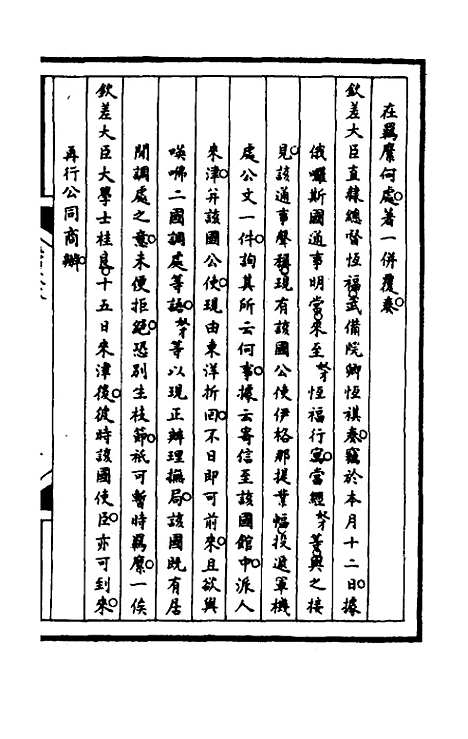 在羈縻何處著一併覆奏
欽差大臣直隸總督恆福武備院卿恆祺奏竊於本月十二日據
俄囉斯國通事明當來至奴才恆福行寓當經奴才等與之接
見該通事聲稱現有該國公使伊格那提業幅投遞軍機
處公文一件詢其所云何事據云寄信至該國館中派人
來津并該國公使現由東洋折回不日即可前來且欲與
𠸄咈二國調處等語奴才等以現正辦理撫局該國既有居
間調處之意未便拒絕恐別生枝節祇可暫時羈縻一俟
欽差大臣大學士桂良十五日來津後彼時該國使臣亦可到來
再行公同商辦